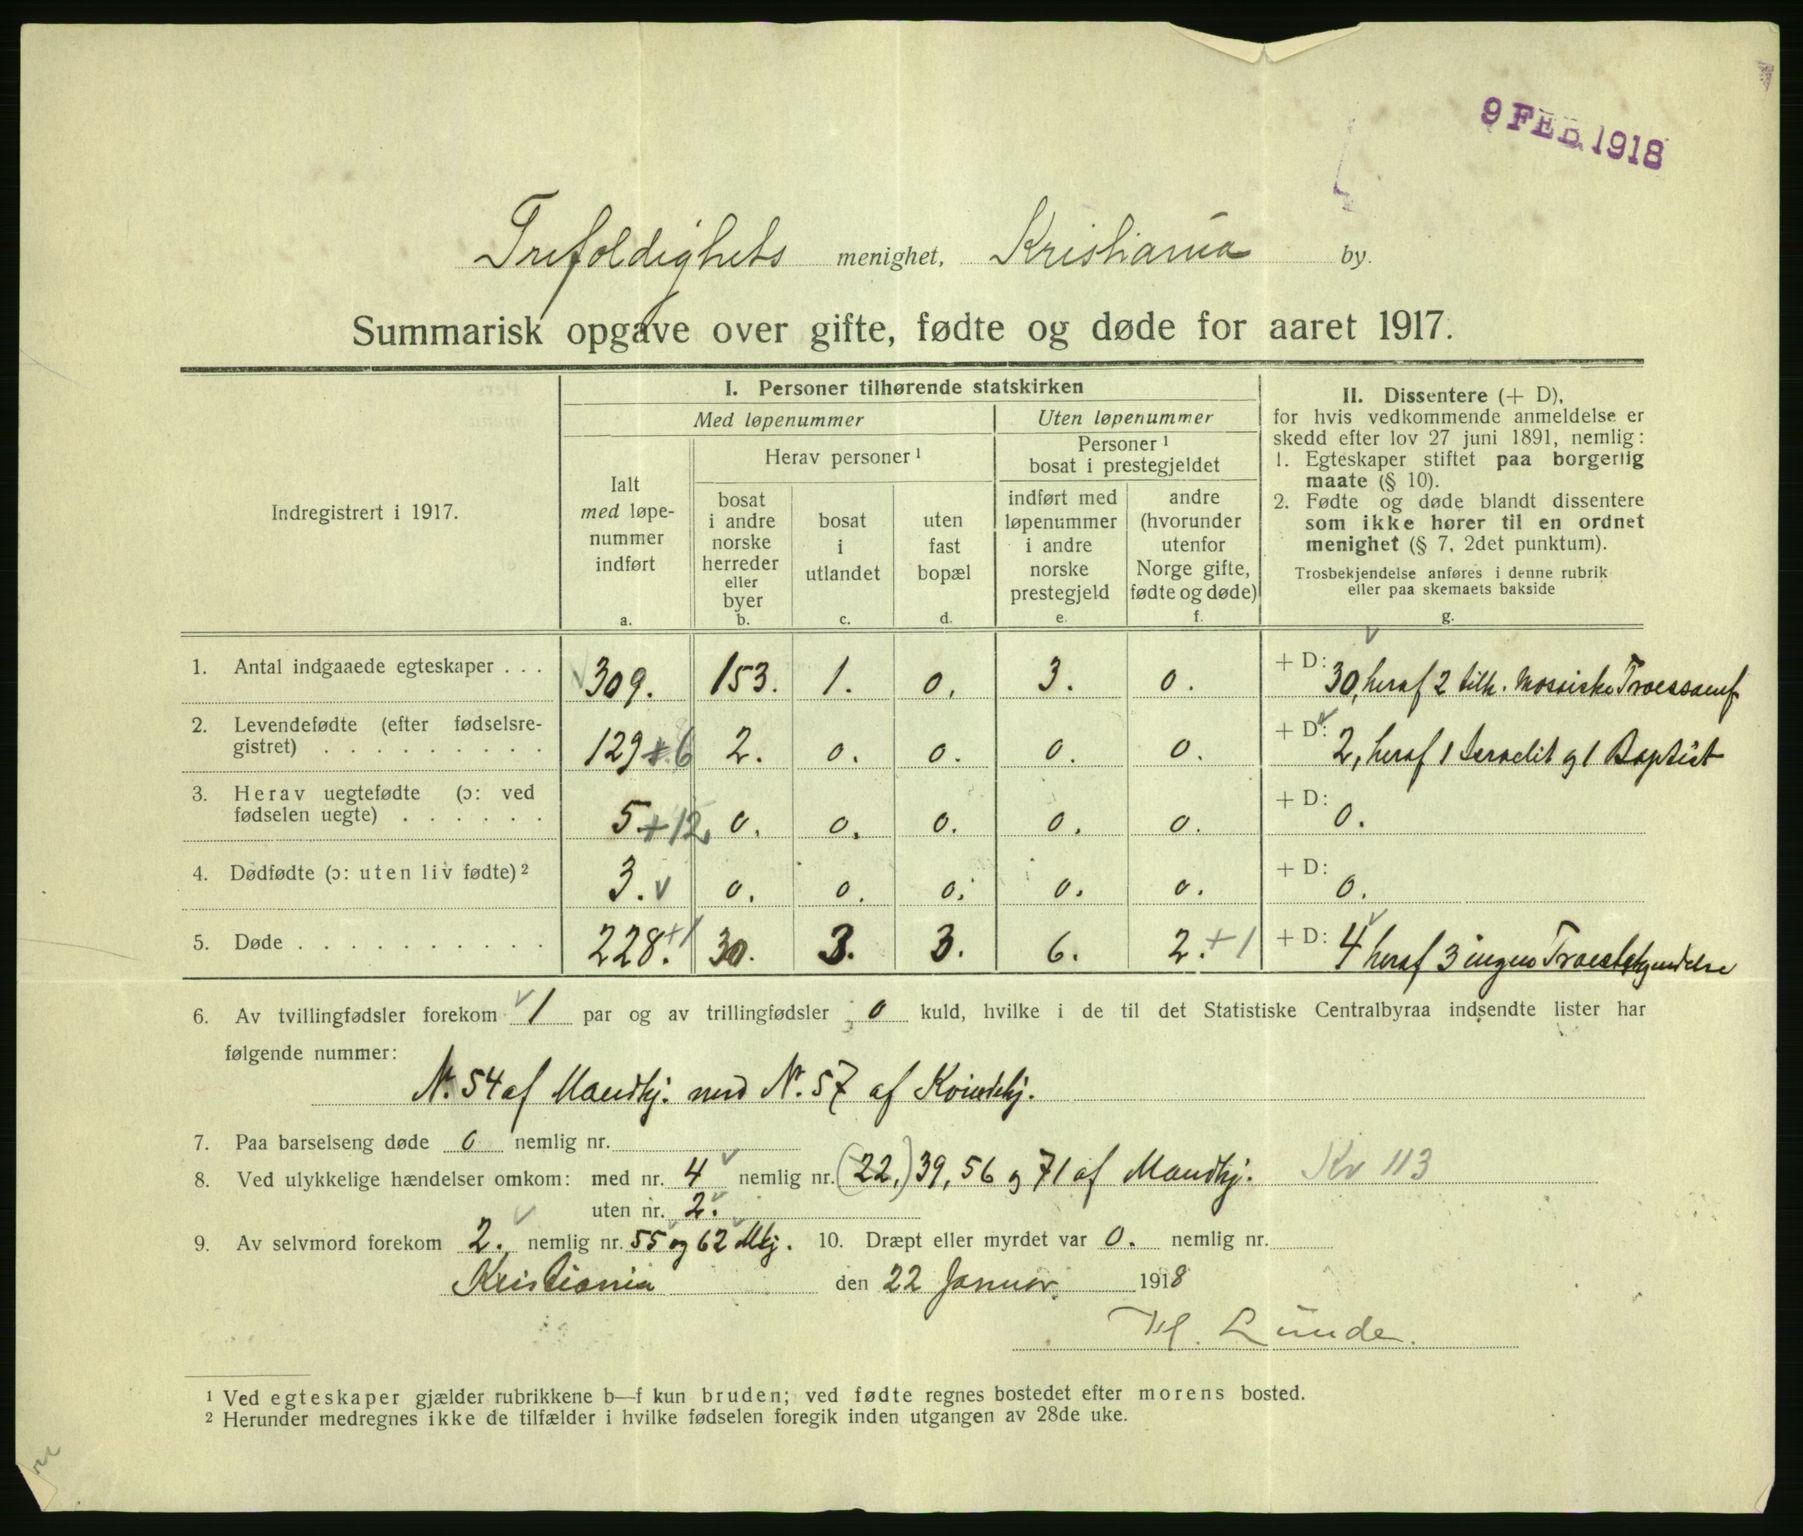 9 FEB. 1918
Trefoldighets menighet, Kristiania by.
Summarisk opgave over gifte, fødte og døde for aaret 1917.
Indregistrert i 1917.
I. Personer tilhørende statskirken
Med løpenummer
Uten løpenummer
Ialt
med løpe-
nummer
indført
a.
Herav personer ¹
bosat
i andre
norske
herreder
eller
byer
b.
bosat
i
utlandet
c.
uten
fast
bopæl
d.
Personer ¹
bosat i prestegjeldet
indført med
løpenummer
i andre
norske
prestegjeld
e.
andre
(hvorunder
utenfor
Norge gifte,
fødte og døde)
f.
II. Dissentere (+ D),
for hvis vedkommende anmeldelse er
skedd efter lov 27 juni 1891, nemlig:
1. Egteskaper stiftet paa borgerlig
maate (§ 10).
2. Fødte og døde blandt dissentere
som ikke hører til en ordnet
menighet (§ 7, 2det punktum).
Trosbekjendelse anføres i denne rubrik
eller paa skemaets bakside
g.
1. Antal indgaaede egteskaper . . . 309. 153. 1. 0. 3. 0. + D: 30, heraf 2 tilh. Mosaiske Troessamf.
2. Levendefødte (efter fødselsre-
gistret) . . . . . . . . . 129 + 6 2. 0. 0. 0. 0. + D: 2, heraf 1 Israelit og 1 Baptist
3. Herav uegtefødte (ɔ: ved
fødselen uegte) . . . . . . 5. + 12, 0. 0. 0. 0. 0. + D: 0.
4. Dødfødte (ɔ: uten liv fødte) ² 3. 0. 0. 0. 0. 0. + D: 0.
5. Døde . . . . . . . . . . 228. +1 30. 3. 3. 6. 2. +1 + D: 4 heraf 3 ingen Troesbekjendelse
6. Av tvillingfødsler forekom 1 par og av trillingfødsler 0 kuld, hvilke i de til det Statistiske Centralbyraa indsendte lister har
følgende nummer:
Nr. 54 af Mandkj. med Nr. 57 af Kvindekj.
7. Paa barselseng døde 0 nemlig nr.
8. Ved ulykkelige hændelser omkom: med nr. 4 nemlig nr. (22,) 39, 56 og 71 af Mandkj. Kv 113
uten nr. 2.
9. Av selvmord forekom 2. nemlig nr. 55 og 62 Mkj. 10. Dræpt eller myrdet var 0. nemlig nr.
Kristiania den 22 Januar 1918
Th. Lunde.
¹ Ved egteskaper gjælder rubrikkene b—f kun bruden; ved fødte regnes bostedet efter morens bosted.
² Herunder medregnes ikke de tilfælder i hvilke fødselen foregik inden utgangen av 28de uke.